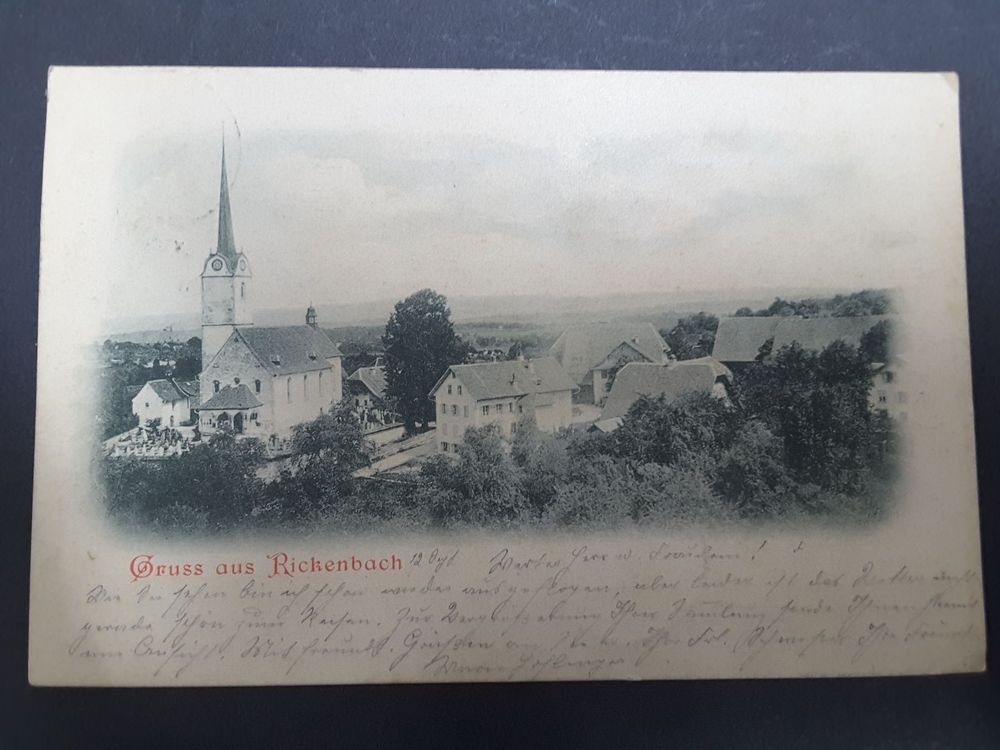 Gruss aus Rickenbach 12 Sept. Werter Herr u. Fräulein!
Wie Sie sehen bin ich schon wieder ausgeflogen, aber leider ist das Wetter nicht
gerade schön zum Reisen. Zur Ihrer Sammlung sende Ihnen
eine Ansicht. Mit freundl. Grüßen an Sie u. Ihr Frl. Schwester Ihre